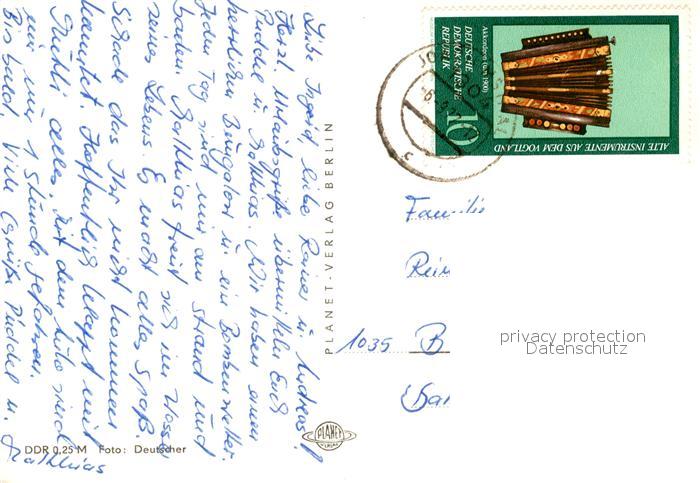 Liebe Ingrid, liebe Rainer u. Andreas!
Herzl. Urlaubsgrüße übermitteln Euch
Püddel u. Matthias. Wir haben einen
herrlichen Bungalow u. ein Bombenwetter.
Jeden Tag sind wir am Strand und
baden. Matthias freut sich im Wasser
seines Lebens. Es macht alles Spaß.
Schade das Ihr nicht kommen
konntet. Hoffentlich klappt mit
alles, mit dem Auto sind
wir nur 1 Stunde gefahren.
Bis bald, viele Grüße Püddel u.
Matthias
PLANET-VERLAG BERLIN
DDR 0,25 M Foto: Deutscher
PLANET
VERLAG
ALTE INSTRUMENTE AUS DEM VOGTLAND
Akkordeon (um 1900)
DEUTSCHE
DEMOKRATISCHE
REPUBLIK
10
Familie
Rein
1035 B
privacy protection
Datenschutz